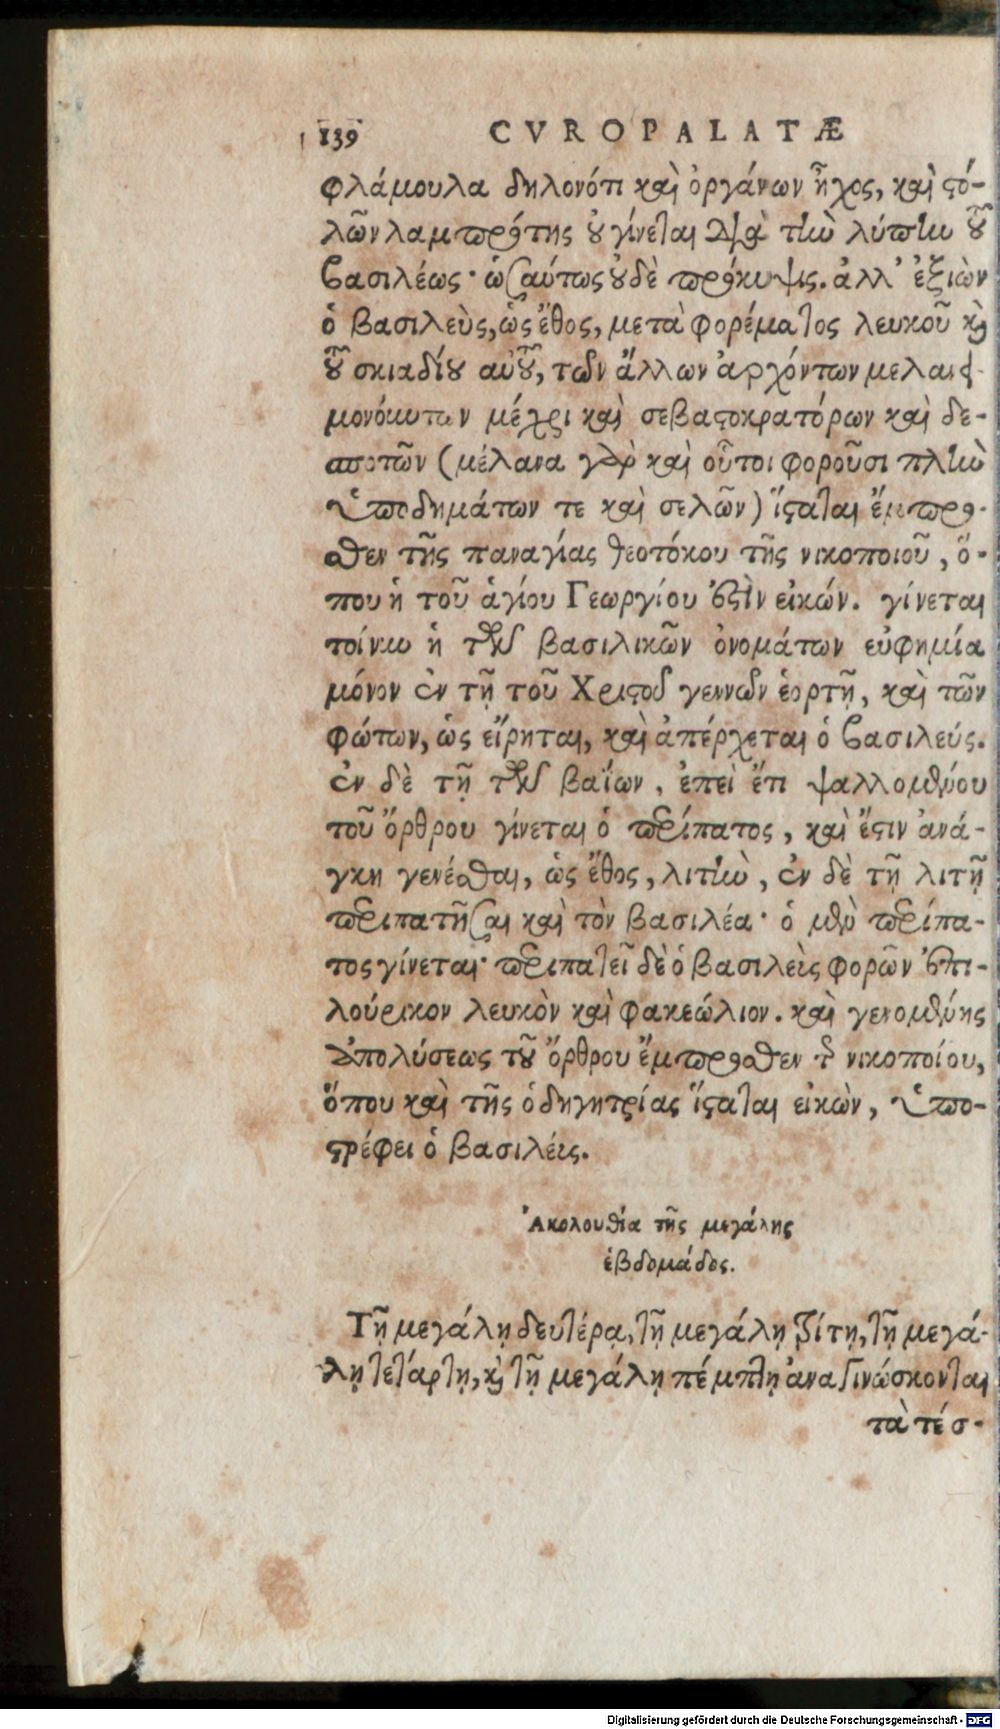 139 CVROPALATÆ
φλάμουλα δηλονότι καὶ ὀργάνων ἦχος, καὶ ϛό-
λῶν λαμπρότης οὐ γίνεται διὰ τὴν λύπην τοῦ
βασιλέως· ὡσαύτως οὐδὲ πρόκυψις. ἀλλ' ἐξιὼν
ὁ βασιλεὺς, ὡς ἔθος, μετὰ φορέματος λευκοῦ καὶ
τοῦ σκιαδίου αὐτοῦ, τῶν ἄλλων ἀρχόντων μελαι-
μονόντων μέχρι καὶ σεβαϛοκρατόρων καὶ δε-
σποτῶν (μέλανα γὰρ καὶ οὗτοι φοροῦσι πλὴν
ὑποδημάτων τε καὶ σελῶν) ἵϛαται ἔμπρο-
σθεν τῆς παναγίας θεοτόκου τῆς νικοποιοῦ, ὅ-
που ἡ τοῦ ἁγίου Γεωργίου ἐϛὶν εἰκών. γίνεται
τοίνυν ἡ τῶν βασιλικῶν ὀνομάτων εὐφημία
μόνον ἐν τῇ τοῦ Χριϛοῦ γεννῶν ἑορτῇ, καὶ τῶν
φώτων, ὡς εἴρηται, καὶ ἀπέρχεται ὁ βασιλεύς.
ἐν δὲ τῇ τῶν βαΐων, ἐπεὶ ἔτι ψαλλομένου
τοῦ ὄρθρου γίνεται ὁ περίπατος, καὶ ἔϛιν ἀνά-
γκη γενέσθαι, ὡς ἔθος, λιτὴν, ἐν δὲ τῇ λιτῇ
περιπατῆσαι καὶ τὸν βασιλέα· ὁ μὲν περίπα-
τος γίνεται· περιπατεῖ δὲ ὁ βασιλεὺς φορῶν ἐπι-
λούρικον λευκὸν καὶ φακεώλιον. καὶ γενομένης
ἀπολύσεως τοῦ ὄρθρου ἔμπροσθεν τῆς νικοποίου,
ὅπου καὶ τῆς ὁδηγητρίας ἵϛαται εἰκὼν, ὑπο-
ϛρέφει ὁ βασιλεύς.
Ἀκολουθία τῆς μεγάλης
ἑβδομάδος.
Τῇ μεγάλῃ δευτέρᾳ, τῇ μεγάλῃ τρίτῃ, τῇ μεγά-
λῃ τετάρτῃ, καὶ τῇ μεγάλῃ πέμπτῃ ἀναγινώσκονται
τὰ τέσ-
Digitalisierung gefördert durch die Deutsche Forschungsgemeinschaft - DFG